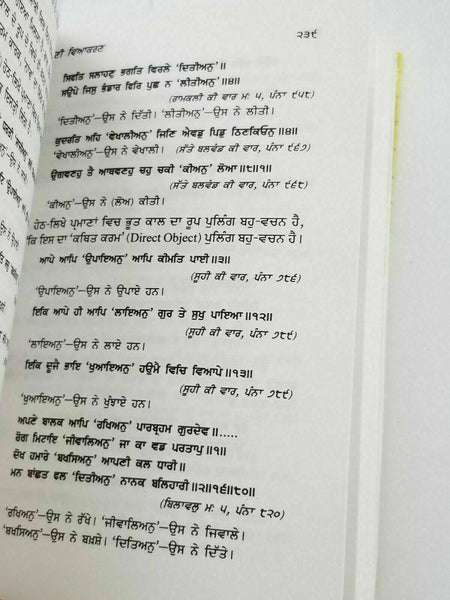 ਣੀ ਵਿਆਕਰਣ
੨੩੯
ਸਿਫਤਿ ਸਲਾਹਣੁ ਭਗਤਿ ਵਿਰਲੇ ‘ਦਿਤੀਅਨੁ’॥
ਸਉਪੇ ਜਿਸੁ ਭੰਡਾਰ ਫਿਰਿ ਪੁਛ ਨ ‘ਲੀਤੀਅਨੁ’॥੪॥
(ਰਾਮਕਲੀ ਕੀ ਵਾਰ ਮ: ੫, ਪੰਨਾ ੯੫੮)
‘ਦਿਤੀਅਨੁ’—ਉਸ ਨੇ ਦਿੱਤੀ। ‘ਲੀਤੀਅਨੁ’—ਉਸ ਨੇ ਲੀਤੀ।
ਕੁਦਰਤਿ ਅਹਿ ‘ਵੇਖਾਲੀਅਨੁ’ ਜਿਣਿ ਐਵਡੁ ਪਿਡੁ ਠਿਣਕਿਓਨੁ॥੪॥
‘ਵੇਖਾਲੀਅਨੁ’—ਉਸ ਨੇ ਵੇਖਾਲੀ। (ਸੱਤੇ ਬਲਵੰਡ ਕੀ ਵਾਰ, ਪੰਨਾ ੯੬੭)
ਉਗਵਣਹੁ ਤੈ ਆਥਵਣਹੁ ਚਹੁ ਚਕੀ ‘ਕੀਅਨੁ’ ਲੋਆ॥੮॥੧॥
(ਸੱਤੇ ਬਲਵੰਡ ਕੀ ਵਾਰ, ਪੰਨਾ ੯੬੮)
‘ਕੀਅਨੁ’—ਉਸ ਨੇ (ਲੋਅ) ਕੀਤੀ।
ਹੇਠ-ਲਿਖੇ ਪ੍ਰਮਾਣਾਂ ਵਿਚ ਭੂਤ ਕਾਲ ਦਾ ਰੂਪ ਪੁਲਿੰਗ ਬਹੁ-ਵਚਨ ਹੈ,
ਕਿ ਇਸ ਦਾ ‘ਕਥਿਤ ਕਰਮ’ (Direct Object) ਪੁਲਿੰਗ ਬਹੁ-ਵਚਨ ਹੈ।
ਆਪੇ ਆਪਿ ‘ਉਪਾਇਅਨੁ’ ਆਪਿ ਕੀਮਤਿ ਪਾਈ॥੩॥
(ਸੂਹੀ ਕੀ ਵਾਰ, ਪੰਨਾ ੭੮੬)
‘ਉਪਾਇਅਨੁ’—ਉਸ ਨੇ ਉਪਾਏ ਹਨ।
ਇਕਿ ਆਪੇ ਹੀ ਆਪਿ ‘ਲਾਇਅਨੁ’ ਗੁਰ ਤੇ ਸੁਖੁ ਪਾਇਆ॥੧੨॥
(ਸੂਹੀ ਕੀ ਵਾਰ, ਪੰਨਾ ੭੮੯)
‘ਲਾਇਅਨੁ’—ਉਸ ਨੇ ਲਾਏ ਹਨ।
ਇਕਿ ਦੂਜੈ ਭਾਇ ‘ਖੁਆਇਅਨੁ’ ਹਉਮੈ ਵਿਚਿ ਵਿਆਪੇ॥੧੩॥
(ਸੂਹੀ ਕੀ ਵਾਰ, ਪੰਨਾ ੭੮੯)
‘ਖੁਆਇਅਨੁ’—ਉਸ ਨੇ ਖੁੰਝਾਏ ਹਨ।
ਅਪਣੇ ਬਾਲਕ ਆਪਿ ‘ਰਖਿਅਨੁ’ ਪਾਰਬ੍ਰਹਮ ਗੁਰਦੇਵ॥.....
ਰੋਗ ਮਿਟਾਇ ‘ਜੀਵਾਲਿਅਨੁ’ ਜਾ ਕਾ ਵਡ ਪਰਤਾਪੁ॥੧॥
ਦੋਖ ਹਮਾਰੇ ‘ਬਖਸਿਅਨੁ’ ਆਪਣੀ ਕਲ ਧਾਰੀ॥
ਮਨ ਬਾਂਛਤ ਫਲ ‘ਦਿਤਿਅਨੁ’ ਨਾਨਕ ਬਲਿਹਾਰੀ॥੨॥੧੬॥੮੦॥
(ਬਿਲਾਵਲੁ ਮ: ੫, ਪੰਨਾ ੮੨੦)
‘ਰਖਿਅਨੁ’—ਉਸ ਨੇ ਰੱਖੇ। ‘ਜੀਵਾਲਿਅਨੁ’—ਉਸ ਨੇ ਜਿਵਾਲੇ।
‘ਬਖਸਿਅਨੁ’—ਉਸ ਨੇ ਬਖ਼ਸ਼ੇ। ‘ਦਿਤਿਅਨੁ’—ਉਸ ਨੇ ਦਿੱਤੇ।